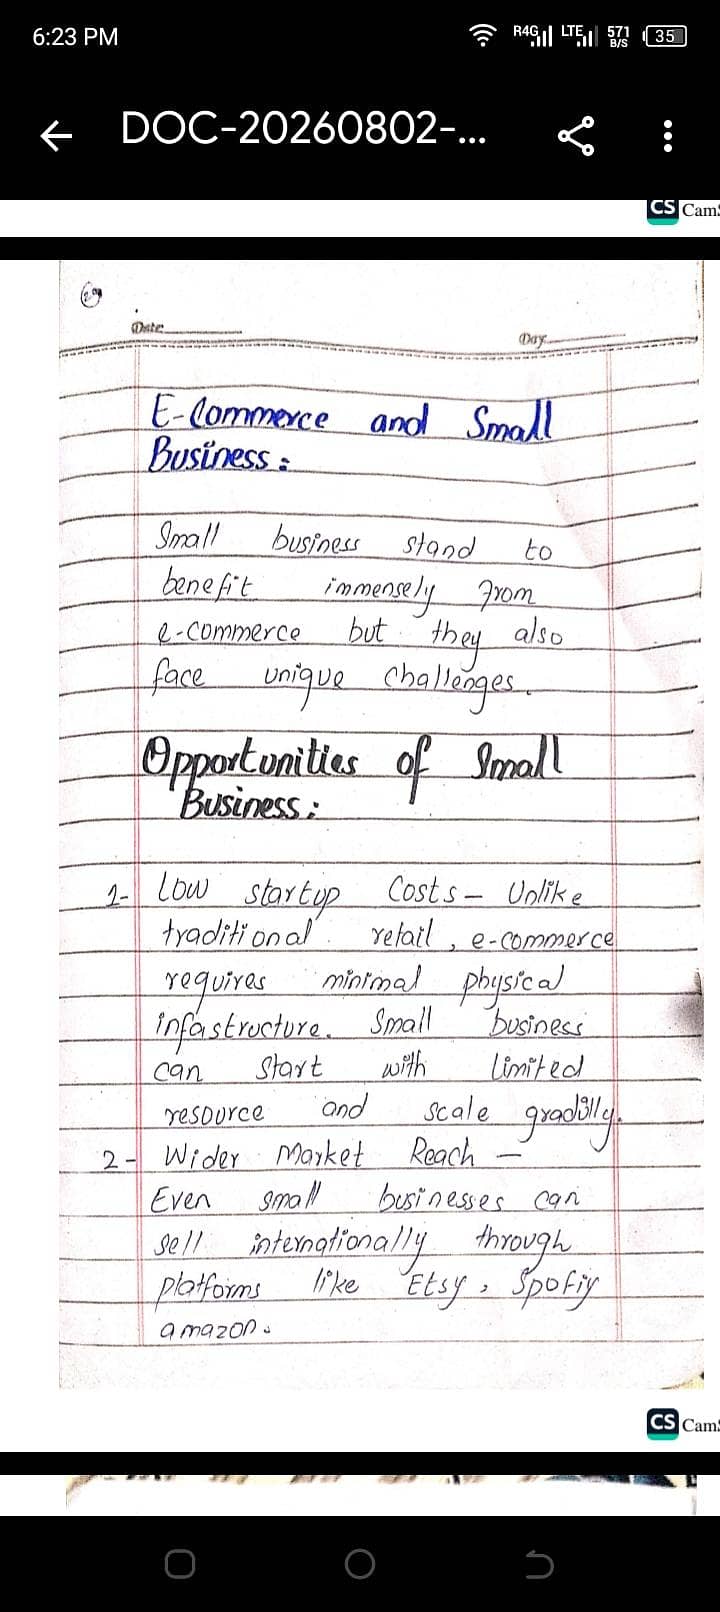 6:23 PM
R4G LTE 571 B/S 35
DOC-20260802-...
CS CamS
Date
Day
E-Commerce and Small
Business :
Small business stand to
benefit immensely from
e-commerce but they also
face unique challenges.
Opportunities of Small
Business :
1- Low startup Costs - Unlike
traditional retail, e-commerce
requires minimal physical
infastructure. Small business
can start with limited
resource and scale gradully.
2- Wider Market Reach -
Even small businesses can
sell internationally through
platforms like Etsy, Spofiy
amazon.
CS CamS